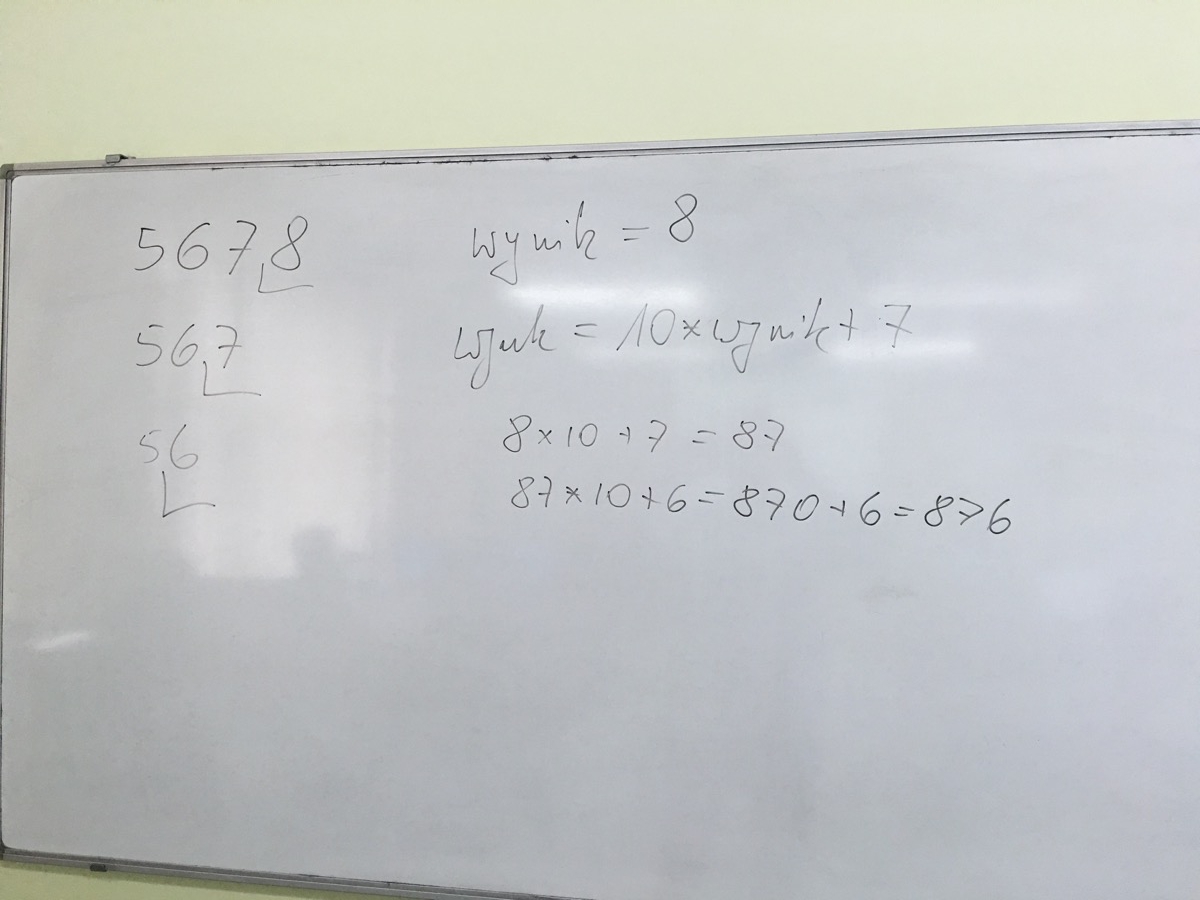 5678
wynik = 8
567
wynik = 10×wynik + 7
56
8×10 + 7 = 87
87×10+6 = 870+6 = 876